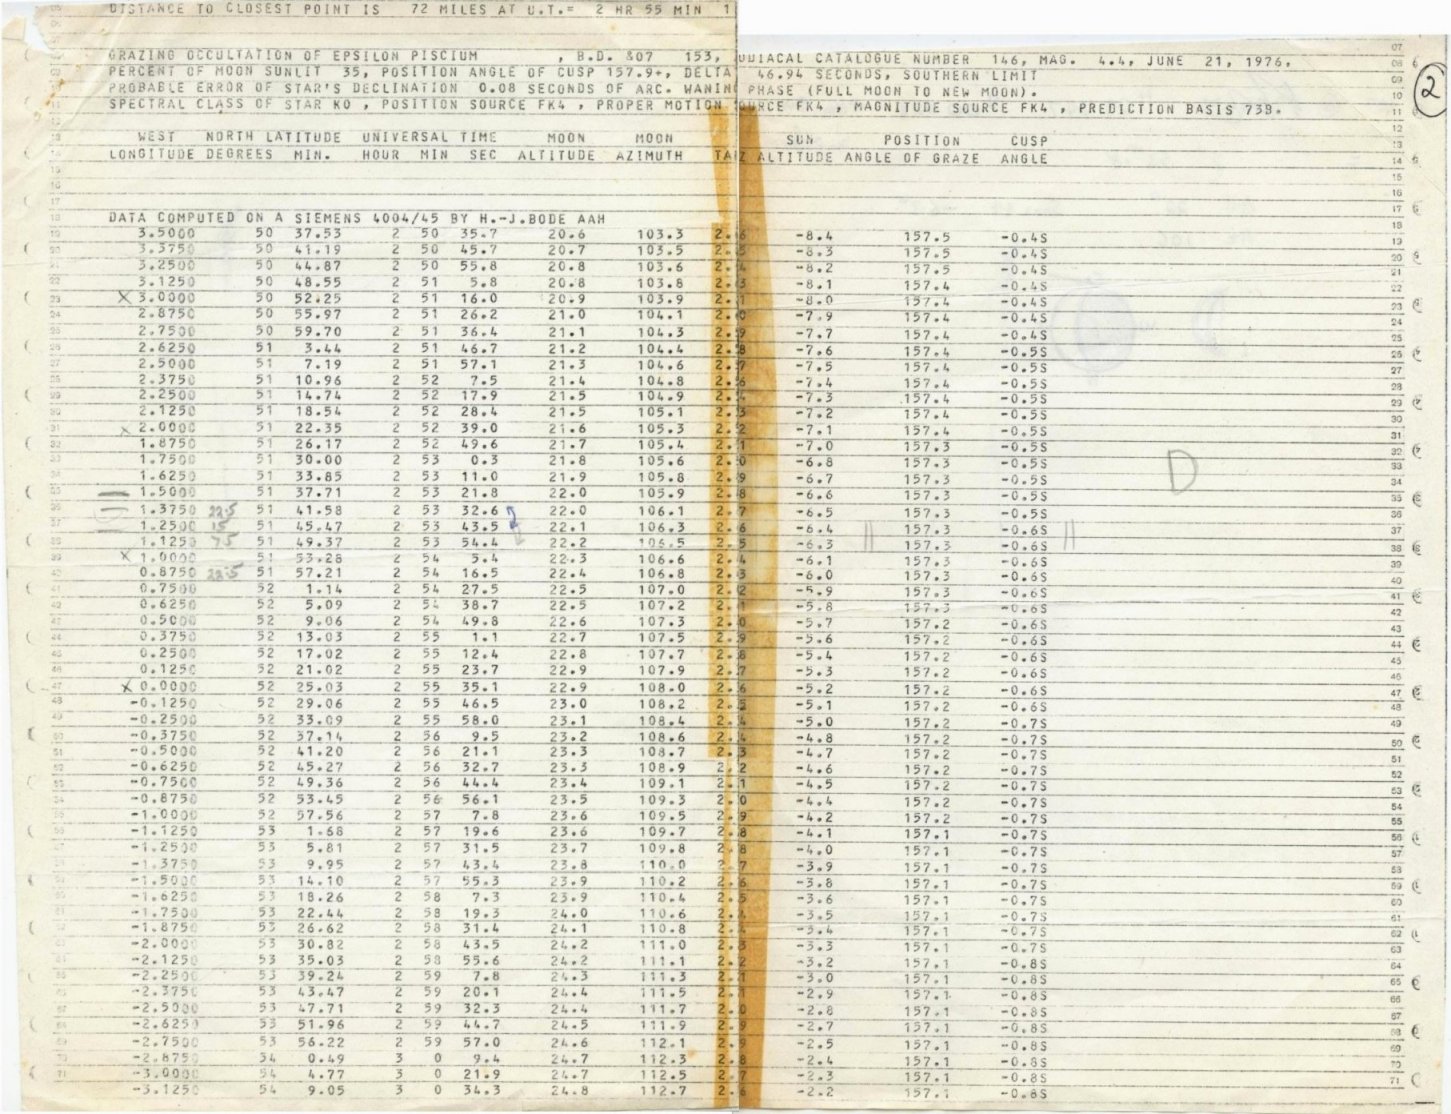 DISTANCE TO CLOSEST POINT IS 72 MILES AT U.T.= 2 HR 55 MIN 1
GRAZING OCCULTATION OF EPSILON PISCIUM , B.D. &07 153, ZODIACAL CATALOGUE NUMBER 146, MAG. 4.4, JUNE 21, 1976,
PERCENT OF MOON SUNLIT 35, POSITION ANGLE OF CUSP 157.9+, DELTA 46.94 SECONDS, SOUTHERN LIMIT
PROBABLE ERROR OF STAR'S DECLINATION 0.08 SECONDS OF ARC. WANING PHASE (FULL MOON TO NEW MOON).
SPECTRAL CLASS OF STAR K0 , POSITION SOURCE FK4 , PROPER MOTION SOURCE FK4 , MAGNITUDE SOURCE FK4 , PREDICTION BASIS 73B.
②
WEST NORTH LATITUDE UNIVERSAL TIME MOON MOON SUN POSITION CUSP
LONGITUDE DEGREES MIN. HOUR MIN SEC ALTITUDE AZIMUTH TANZ ALTITUDE ANGLE OF GRAZE ANGLE
DATA COMPUTED ON A SIEMENS 4004/45 BY H.-J.BODE AAH
3.5000 50 37.53 2 50 35.7 20.6 103.3 2.6 -8.4 157.5 -0.4S
3.3750 50 41.19 2 50 45.7 20.7 103.5 2. -8.3 157.5 -0.4S
3.2500 50 44.87 2 50 55.8 20.8 103.6 2. -8.2 157.5 -0.4S
3.1250 50 48.55 2 51 5.8 20.8 103.8 2. -8.1 157.4 -0.4S
X 3.0000 50 52.25 2 51 16.0 20.9 103.9 2. -8.0 157.4 -0.4S
2.8750 50 55.97 2 51 26.2 21.0 104.1 2. -7.9 157.4 -0.4S
2.7500 50 59.70 2 51 36.4 21.1 104.3 2. -7.7 157.4 -0.4S
2.6250 51 3.44 2 51 46.7 21.2 104.4 2. -7.6 157.4 -0.5S
2.5000 51 7.19 2 51 57.1 21.3 104.6 2. -7.5 157.4 -0.5S
2.3750 51 10.96 2 52 7.5 21.4 104.8 2. -7.4 157.4 -0.5S
2.2500 51 14.74 2 52 17.9 21.5 104.9 2. -7.3 157.4 -0.5S
2.1250 51 18.54 2 52 28.4 21.5 105.1 2. -7.2 157.4 -0.5S
X 2.0000 51 22.35 2 52 39.0 21.6 105.3 2. -7.1 157.4 -0.5S
1.8750 51 26.17 2 52 49.6 21.7 105.4 2. -7.0 157.3 -0.5S
1.7500 51 30.00 2 53 0.3 21.8 105.6 2. -6.8 157.3 -0.5S
1.6250 51 33.85 2 53 11.0 21.9 105.8 2. -6.7 157.3 -0.5S D
1.5000 51 37.71 2 53 21.8 22.0 105.9 2. -6.6 157.3 -0.5S
1.3750 22.5 51 41.58 2 53 32.6 22.0 106.1 2. -6.5 157.3 -0.5S
1.2500 15 51 45.47 2 53 43.5 22.1 106.3 2. -6.4 157.3 -0.6S
1.1250 7.5 51 49.37 2 53 54.4 22.2 106.5 2. -6.3 157.3 -0.6S
X 1.0000 51 53.28 2 54 5.4 22.3 106.6 2. -6.1 157.3 -0.6S
0.8750 22.5 51 57.21 2 54 16.5 22.4 106.8 2. -6.0 157.3 -0.6S
0.7500 52 1.14 2 54 27.5 22.5 107.0 2. -5.9 157.3 -0.6S
0.6250 52 5.09 2 54 38.7 22.5 107.2 2. -5.8 157.3 -0.6S
0.5000 52 9.06 2 54 49.8 22.6 107.3 2. -5.7 157.2 -0.6S
0.3750 52 13.03 2 55 1.1 22.7 107.5 2. -5.6 157.2 -0.6S
0.2500 52 17.02 2 55 12.4 22.8 107.7 2. -5.4 157.2 -0.6S
0.1250 52 21.02 2 55 23.7 22.9 107.9 2. -5.3 157.2 -0.6S
X 0.0000 52 25.03 2 55 35.1 22.9 108.0 2. -5.2 157.2 -0.6S
-0.1250 52 29.06 2 55 46.5 23.0 108.2 2. -5.1 157.2 -0.6S
-0.2500 52 33.09 2 55 58.0 23.1 108.4 2. -5.0 157.2 -0.7S
-0.3750 52 37.14 2 56 9.5 23.2 108.6 2. -4.8 157.2 -0.7S
-0.5000 52 41.20 2 56 21.1 23.3 108.7 2.3 -4.7 157.2 -0.7S
-0.6250 52 45.27 2 56 32.7 23.3 108.9 2.2 -4.6 157.2 -0.7S
-0.7500 52 49.36 2 56 44.4 23.4 109.1 2.1 -4.5 157.2 -0.7S
-0.8750 52 53.45 2 56 56.1 23.5 109.3 2.0 -4.4 157.2 -0.7S
-1.0000 52 57.56 2 57 7.8 23.6 109.5 2.9 -4.2 157.2 -0.7S
-1.1250 53 1.68 2 57 19.6 23.6 109.7 2.8 -4.1 157.1 -0.7S
-1.2500 53 5.81 2 57 31.5 23.7 109.8 2.8 -4.0 157.1 -0.7S
-1.3750 53 9.95 2 57 43.4 23.8 110.0 2.7 -3.9 157.1 -0.7S
-1.5000 53 14.10 2 57 55.3 23.9 110.2 2.6 -3.8 157.1 -0.7S
-1.6250 53 18.26 2 58 7.3 23.9 110.4 2.5 -3.6 157.1 -0.7S
-1.7500 53 22.44 2 58 19.3 24.0 110.6 2. -3.5 157.1 -0.7S
-1.8750 53 26.62 2 58 31.4 24.1 110.8 2. -3.4 157.1 -0.7S
-2.0000 53 30.82 2 58 43.5 24.2 111.0 2.3 -3.3 157.1 -0.7S
-2.1250 53 35.03 2 58 55.6 24.2 111.1 2.2 -3.2 157.1 -0.8S
-2.2500 53 39.24 2 59 7.8 24.3 111.3 2.1 -3.0 157.1 -0.8S
-2.3750 53 43.47 2 59 20.1 24.4 111.5 2.1 -2.9 157.1 -0.8S
-2.5000 53 47.71 2 59 32.3 24.4 111.7 2.0 -2.8 157.1 -0.8S
-2.6250 53 51.96 2 59 44.7 24.5 111.9 2.9 -2.7 157.1 -0.8S
-2.7500 53 56.22 2 59 57.0 24.6 112.1 2.9 -2.5 157.1 -0.8S
-2.8750 54 0.49 3 0 9.4 24.7 112.3 2.8 -2.4 157.1 -0.8S
-3.0000 54 4.77 3 0 21.9 24.7 112.5 2.7 -2.3 157.1 -0.8S
-3.1250 54 9.05 3 0 34.3 24.8 112.7 2.6 -2.2 157.1 -0.8S